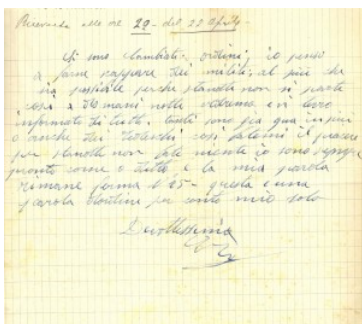 Ricevuta alle ore 20 - del 22 Aprile
Si sono cambiati ordini; io penso
a farne scappare dei militi, al più che
sia possibile perche stanotte non si parte
così a mani nella
informati di tutto. tutti sono già qua in più
o anche dei Tedeschi così fatemi il piacere
per stanotte non fate niente io sono sempre
pronto come e tutto e la mia parola
rimane ferma al 25 - questa e una
parola per conto mio solo
Devotissima